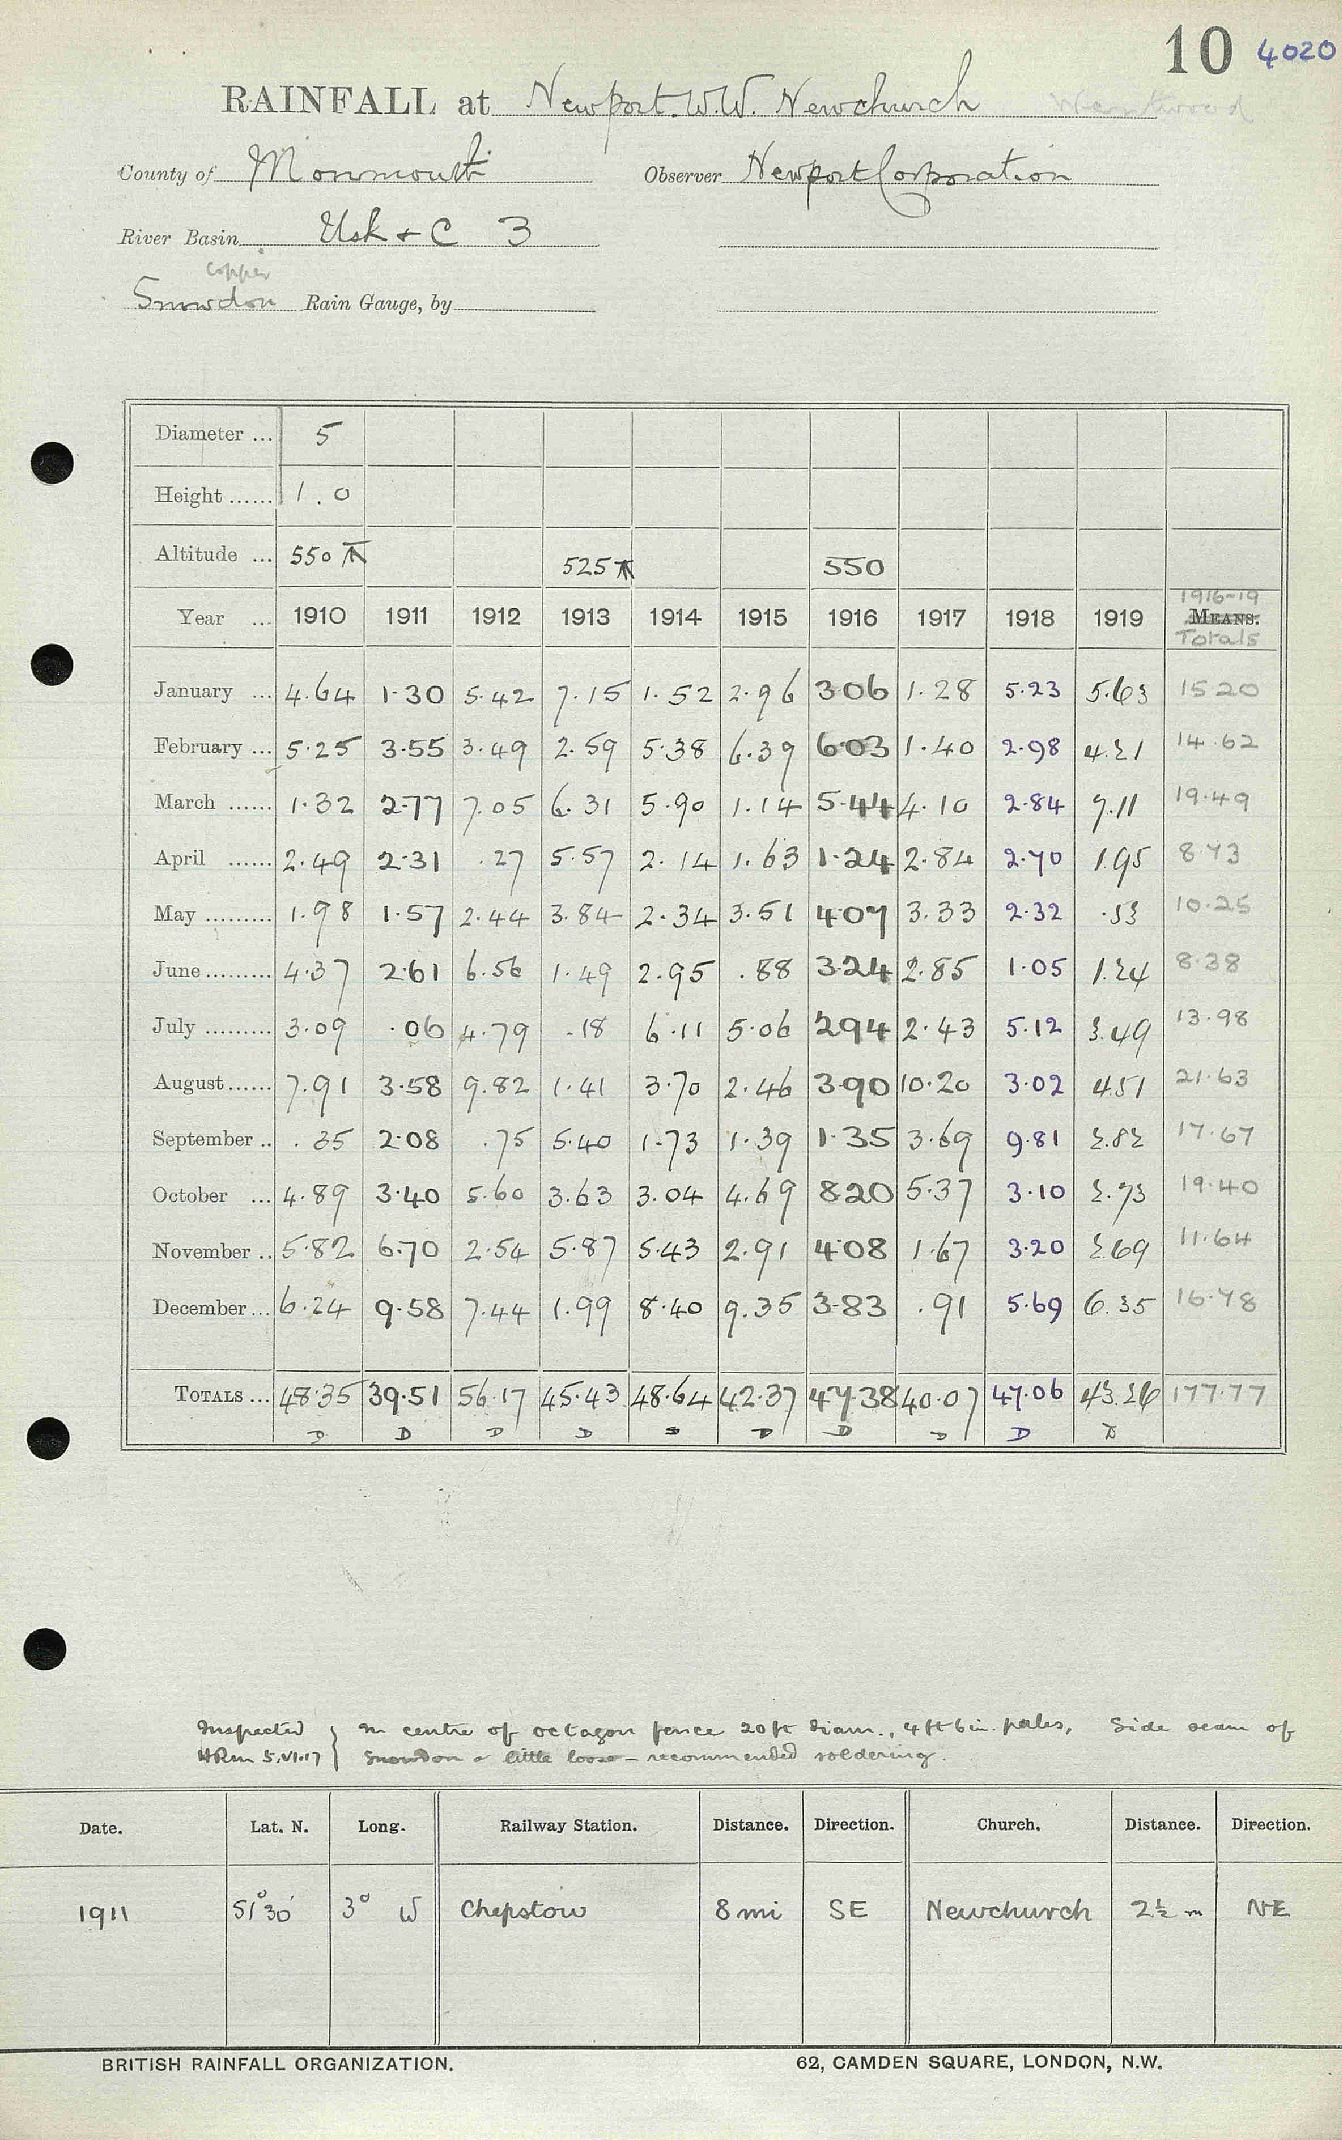 10 4020
RAINFALL at Newport. W.W. Newchurch Wentwood
County of Monmouth Observer Newport Corporation
River Basin Usk + C 3
copper
Snowdon Rain Gauge, by
Diameter ... 5
Height ...... 1.0
Altitude ... 550 525 550
1916-19
Year ... 1910 1911 1912 1913 1914 1915 1916 1917 1918 1919 MEANS.
Totals
January ... 4.64 1.30 5.42 7.15 1.52 2.96 3.06 1.28 5.23 5.63 15.20
February ... 5.25 3.55 3.49 2.59 5.38 6.39 6.03 1.40 2.98 4.21 14.62
March ...... 1.32 2.77 7.05 6.31 5.90 1.14 5.44 4.10 2.84 7.11 19.49
April ...... 2.49 2.31 .27 5.57 2.14 1.63 1.24 2.84 2.70 1.95 8.73
May ......... 1.98 1.57 2.44 3.84 2.34 3.51 4.07 3.33 2.32 .53 10.25
June ......... 4.37 2.61 6.56 1.49 2.95 .88 3.24 2.85 1.05 1.24 8.38
July ......... 3.09 .06 4.79 .18 6.11 5.06 2.94 2.43 5.12 3.49 13.98
August ...... 7.91 3.58 9.82 1.41 3.70 2.46 3.90 10.20 3.02 4.51 21.63
September .. .35 2.08 .75 5.40 1.73 1.39 1.35 3.69 9.81 2.82 17.67
October ... 4.89 3.40 5.60 3.63 3.04 4.69 8.20 5.37 3.10 2.73 19.40
November .. 5.82 6.70 2.54 5.87 5.43 2.91 4.08 1.67 3.20 2.69 11.64
December ... 6.24 9.58 7.44 1.99 8.40 9.35 3.83 .91 5.69 6.35 16.78
TOTALS ... 48.35 39.51 56.17 45.43 48.64 42.37 47.38 40.07 47.06 43.26 177.77
D D D D D D D D D
Inspected } In centre of octagon fence 20ft diam., 4ft 6in. pales, Side seam of
HRM 5.VI.17 } Snowdon a little loose – recommended soldering.
Date. Lat. N. Long. Railway Station. Distance. Direction. Church. Distance. Direction.
1911 51°30' 3° W Chepstow 8 mi SE Newchurch 2½ m NE
BRITISH RAINFALL ORGANIZATION. 62, CAMDEN SQUARE, LONDON, N.W.